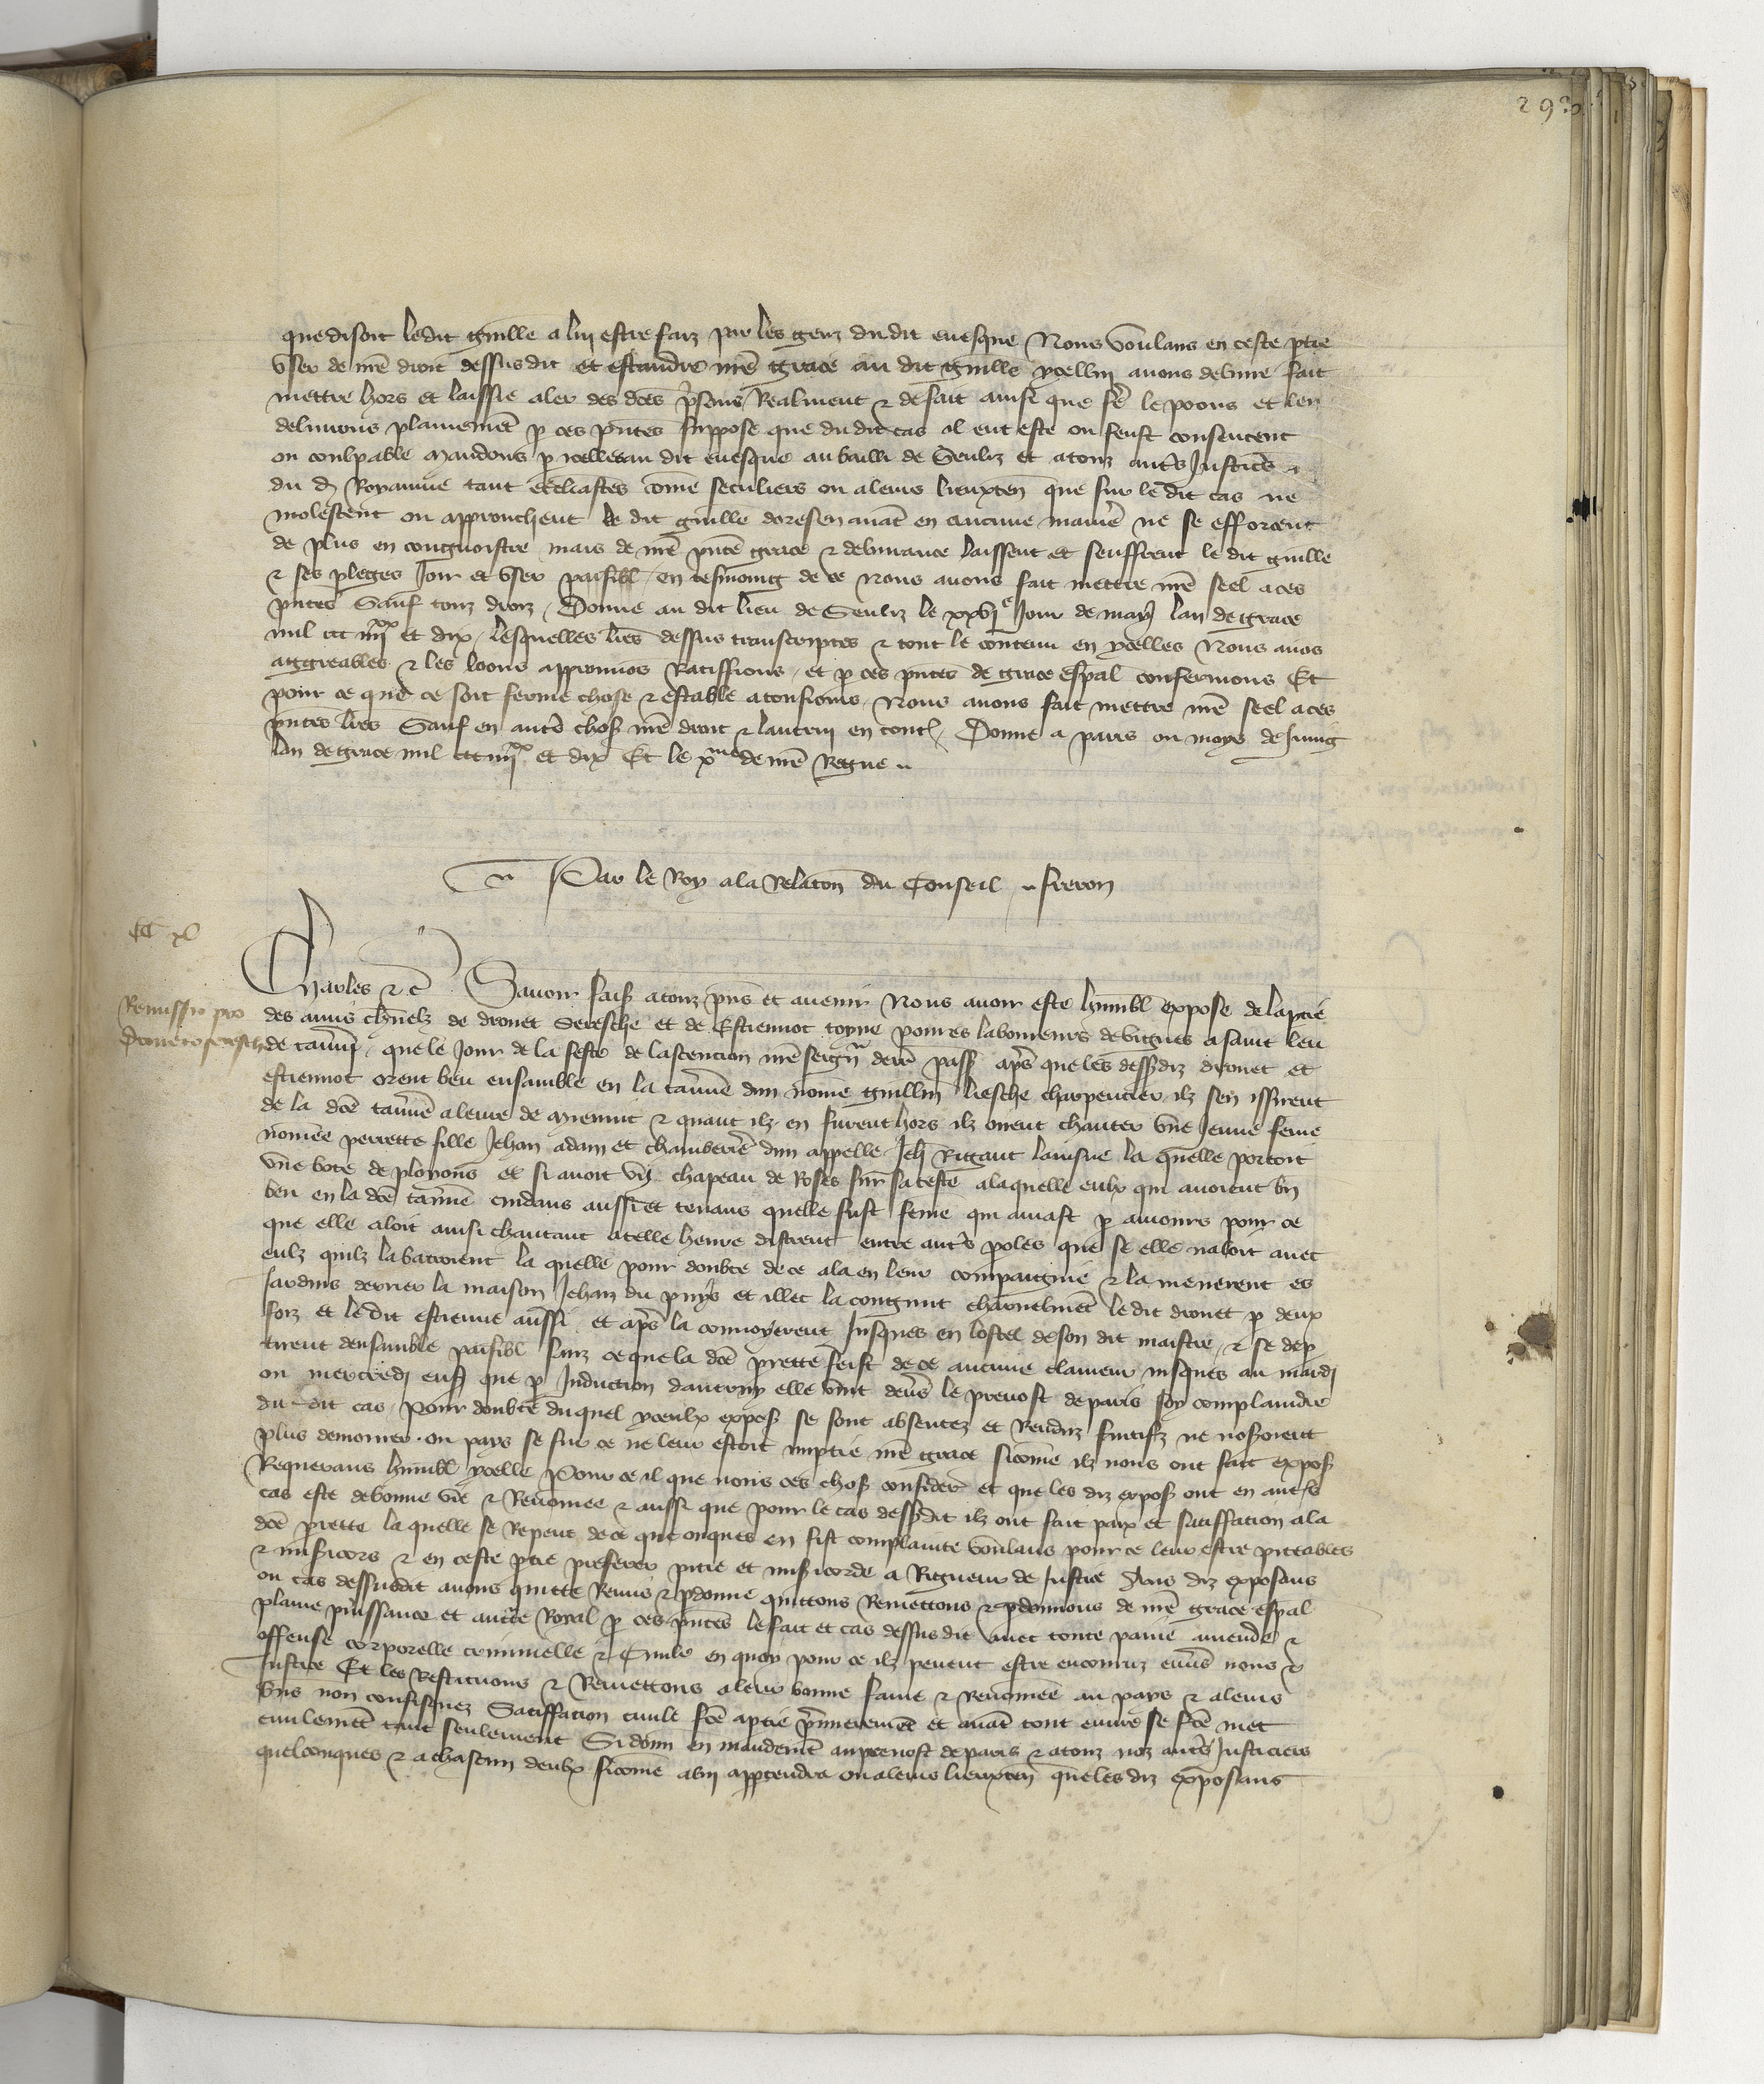 293
que disoit ledit guille a luy estre faiz par les genz du dit evesque Nous voulans en ceste ptie
user de nre droit dessusdit et estandre nre grace au dit guille ycelluy avons delivre fait
mettre hors et laissie aler des dces prisons Realment & de fait ainsi que fere le poons et len
delivrons plainement p ces pntes suppose que du dit cas il eut este ou feust consentent
ou coulpable Mandons p icelles au dit evesque au bailli de Senliz et a touz autres Justices
du dit Royaume tant eccliastes come seculiers ou a leurs lieuxten que sur le dit cas ne
molestent ou approuchent le dit guille doresenavat en aucune maniere ne se efforcent
de plus en congnoistre mais de nre pnte grace & delivrance laissent et seuffrent le dit guille
& ses pleges Joir et user paisibl en tesmoing de ce Nous avons fait mettre nre seel a ces
pntes Sauf touz droiz Donne au dit lieu de Senliz le xxvj e Jour de may lan de grace
mil ccc iiij xx et dix lesquelles lres dessus transcriptes & tout le contenu en ycelles Nous avos
aggreables & les loons approuvos Ratiffions et p ces pntes de grace espal confermons Et
pour ce que ce soit ferme chose & estable a tousiours Nous avons fait mettre nre seel a ces
pntes lres Sauf en autres choses nre droit & lautruy en toutes Donne a paris ou moys de Juing
lan de grace mil ccc iiij xx et dix Et le x me de nre Regne
Par le Roy a la Relacon du Conseil freron
CC xl
Remissio pro
Droueto seresche
Charles &c Savoir faiss a touz pns et avenir Nous avoir este humbl expose de la ptie
des amis charnelz de drouet Seresche et de Estiennot toyne povres laboureurs de vignes a saint leu
de taverny que le Jour de la feste de lascencion nre seigneur derr pass apres que les dess diz drouet et
estiennot orent beu ensamble en la taverne dun nome guillin liesche charpentier ilz sen issirent
de la dce taverne a leure de mienuit & quant ilz en furent hors ilz oirent chanter une Jeune feme
nomee perrette fille Jehan adam et chamberiere dun appelle Jeh Rigaut laisne la quelle portoit
une bote de ployons et si avoit un chapeau de Roses sur sa teste a laquelle eulx qui avoient bn
beu en la dce taverne cuidans aussi et tenans quelle fust feme qui amast p amours pour ce
que elle aloit ainsi chantant a telle heure distrent entre autres poles que se elle naloit avec
eulz quilz la batroient la quelle pour doubte de ce ala en leur compaignie & la menerent es
Jardins derrier la maison Jehan du puys et illec la congnut charnelment le dit drouet p deux
foiz et le dit estienne aussi et apres la convoyerent Jusques en lostel de son dit maistre & se dep
tirent densamble paisibl sanz ce que la dce prette feist de ce aucune clameur jusques au mardi
ou mercredi ensuj que p Induction dautruy elle vint devers le prevost de paris soy complaindre
du dit cas Pour doubte du quel yceulx expos se sont absentez et Renduz fuitifz ne noseroient
plus demourer ou pays se sur ce ne leur estoit imptie nre grace sicome ilz nous ont fait expos
Requerans humbl ycelle Pour ce il que nous ces chos consider et que les diz expos ont en autre
cas este de bonne vie & Renomee & aussi que pour le cas dessdit ilz ont fait paix et satiffation a la
dce prette la quelle se Repent de ce que onques en fist complainte voulans pour ce leur estre piteables
& misicors & en ceste ptie preferer pitie et misicorde a Rigueur de Justice Aus diz exposans
ou cas dessusdit avons quitte Remis & pdonne quittons Remettons & pdonnons de nre grace espal
plaine puissance et aucte Royal p ces pntes le fait et cas dessus dit avec toute paine amende &
offense corporelle criminelle & Civile en quoy pour ce ilz pevent estre encouruz envers nous &
Justice Et les Restituons & Remettons a leur bonne fame & Renomee au pays & a leurs
bns non confisquez Satiffation civile fce a ptie primieremet et avat tout euvre se fce nest
civilement tant seulement Si donn en mandemt au prevost de paris & a touz noz autres Justiciers
quelconques & a chascun deulx sicome a luy apptendra ou a leurs lieuxten que les diz exposans